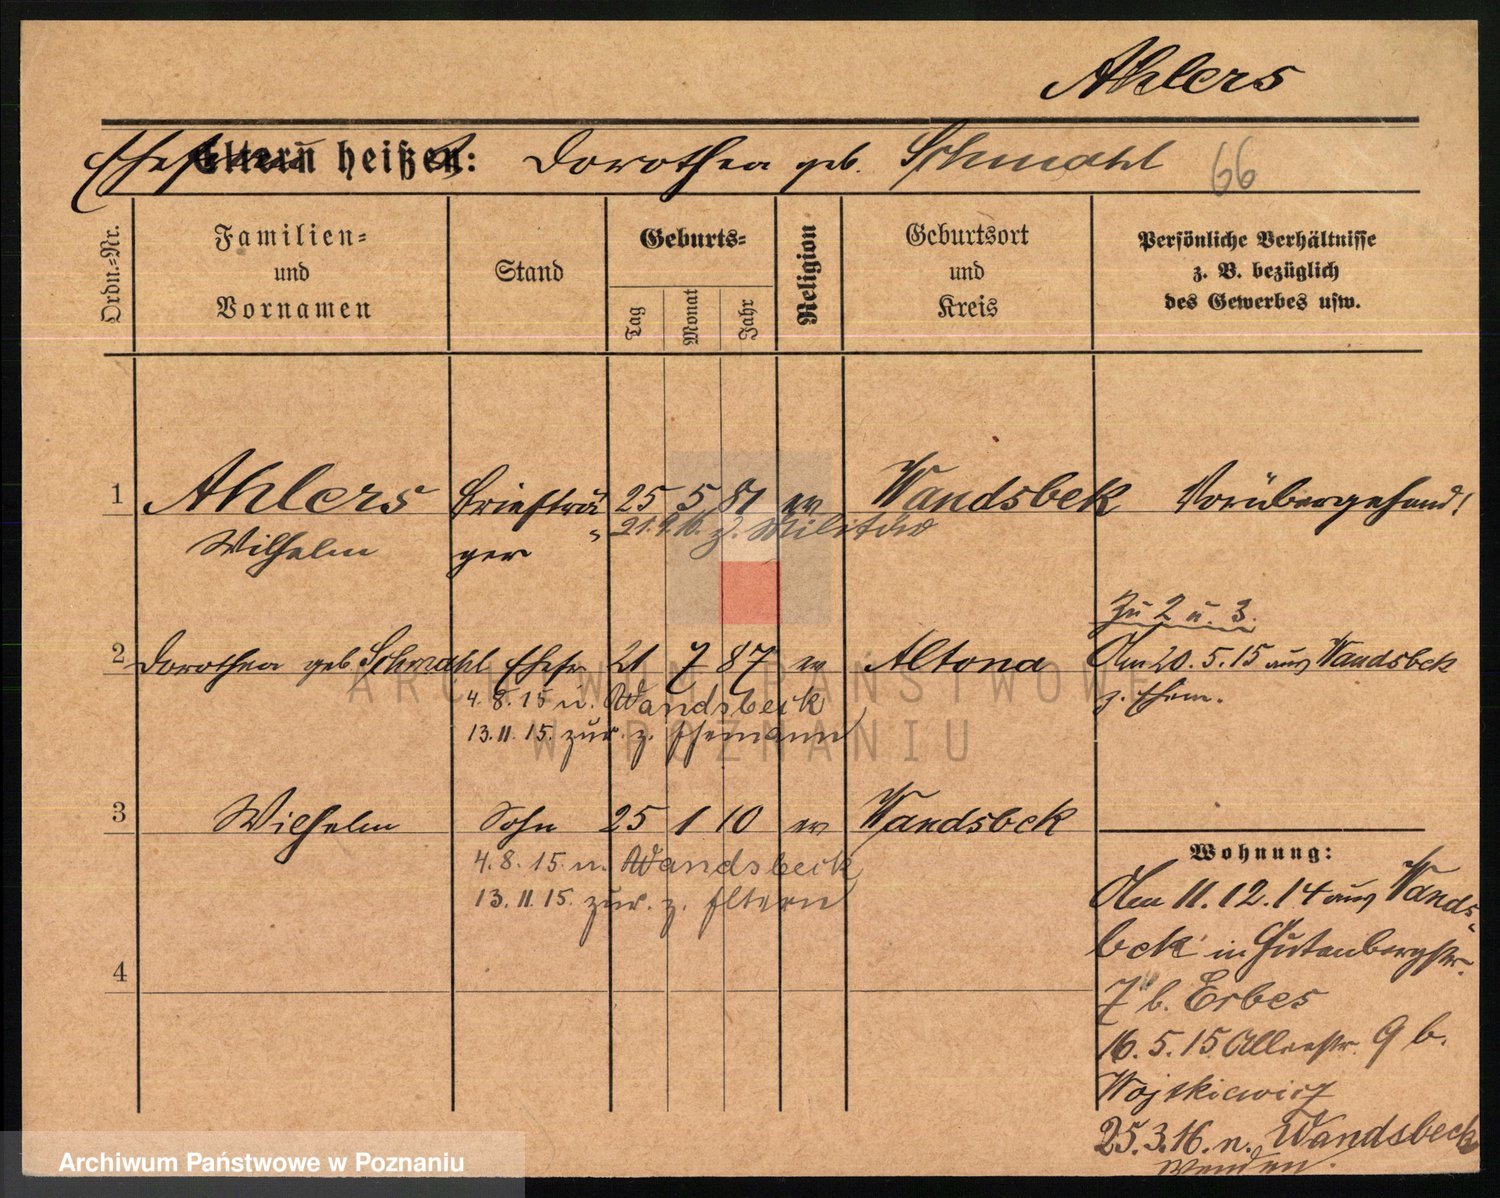 Ahlers
Ehefrau heißt: Dorothea geb. Schmahl 66
Ordn.=Nr.
Familien=
und
Vornamen
Stand
Geburts=
Tag
Monat
Jahr
Religion
Geburtsort
und
Kreis
Persönliche Verhältnisse
z. B. bezüglich
des Gewerbes usw.
1 Ahlers Briefträ 25 5 81 ev Wandsbek Vorübergehend!
Wilhelm ger " 21.9.16. z. Militär
Zu 2 u. 3.
2 Dorothea geb. Schmahl Ehefr 21 7 87 ev Altona Am 20.5.15 aus Wandsbek
4.8.15 n. Wandsbeck z. Ehem.
13.11.15. zur. z. Ehemann
3 Wilhelm Sohn 25 1 10 ev Wandsbek
4.8.15 n. Wandsbeck
13.11.15. zur. z. Eltern
4
Wohnung:
Am 11.12.14 aus Wands-
bek in Gutenbergstr.
7 b. Erbes
16.5.15 Alleestr. 9 b.
Wojtkiewicz
25.3.16. n. Wandsbeck
wenden.
ARCHIWUM PAŃSTWOWE
W POZNANIU
Archiwum Państwowe w Poznaniu